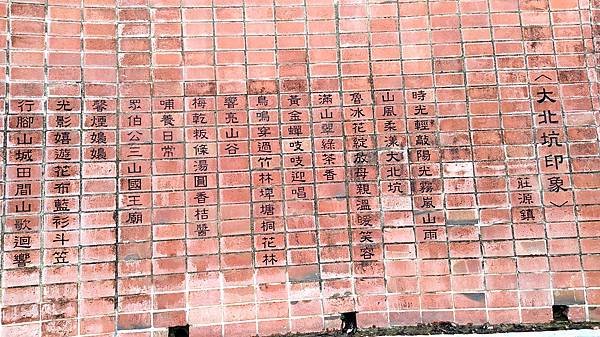 〈大北坑印象〉
莊源鎮
時光輕敲陽光霧嵐山雨
山風柔漾大北坑
魯冰花綻放母親溫暖笑容
滿山翠綠茶香
黃金蟬吱吱迎唱
鳥鳴穿過竹林埤塘桐花林
響亮山谷
梅乾粄條湯圓香桔醬
哺養日常
眾伯公三山國王廟
馨煙嬝嬝
光影嬉遊花布藍衫斗笠
行腳山城田間山歌迴響